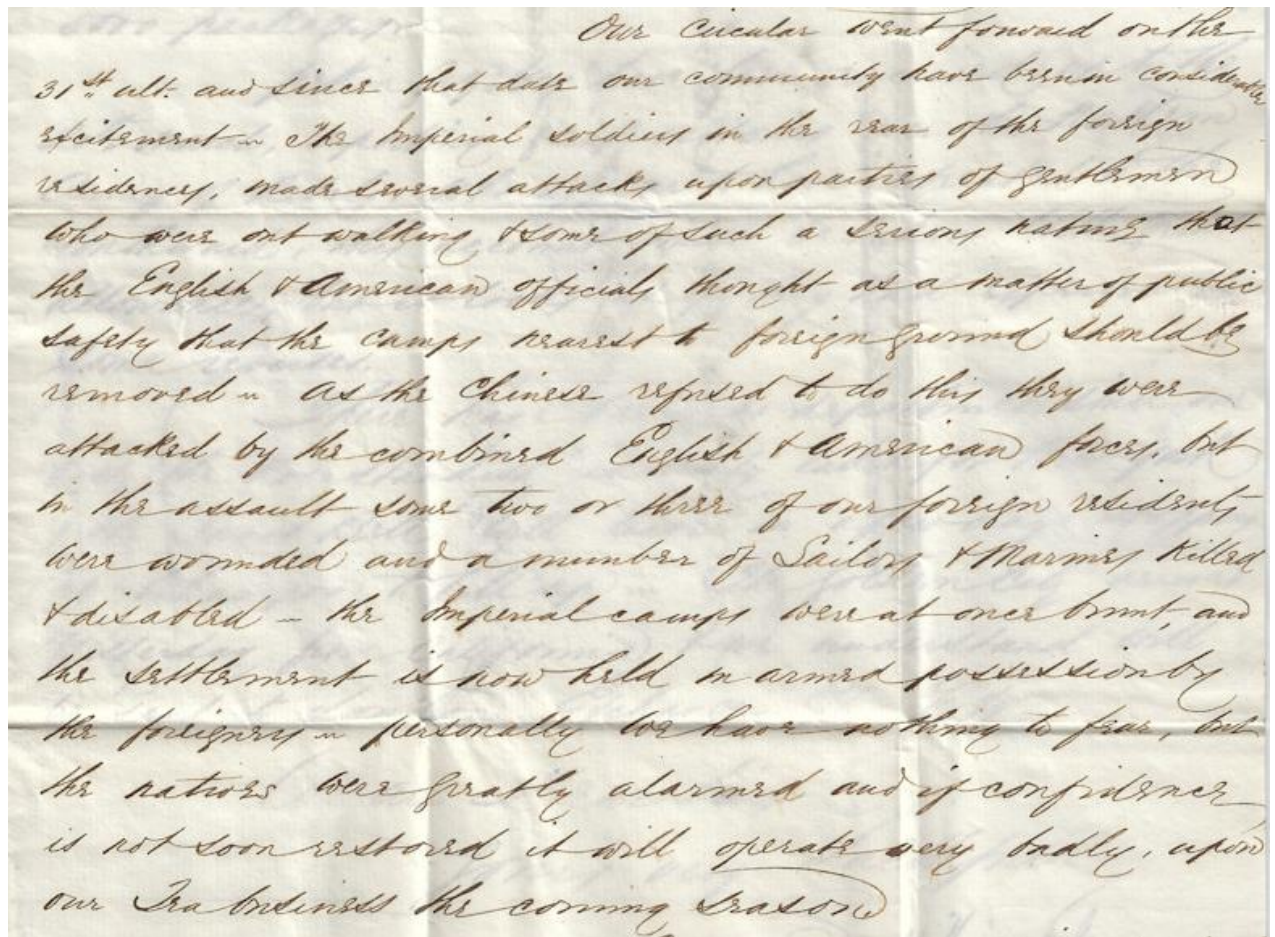 Our circular went forward on the
31st ult. and since that date our community have been in considerable
excitement – The Imperial soldiers in the rear of the foreign
residences, made several attacks upon parties of gentlemen
who were out walking & some of such a serious nature that
the English & American officials thought as a matter of public
safety that the camps nearest to foreign ground should be
removed – As the Chinese refused to do this they were
attacked by the combined English & American forces, but
in the assault some two or three of our foreign residents
were wounded and a number of Sailors & Marines Killed
& disabled – the Imperial camps were at once burnt, and
the settlement is now held in armed possession by
the foreigners – personally we have nothing to fear, but
the natives were greatly alarmed and if confidence
is not soon restored it will operate very badly, upon
our Tea business the coming season